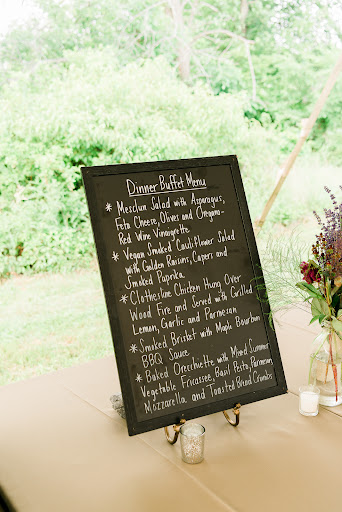 Dinner Buffet Menu
* Mesclun Salad with Asparagus,
Feta Cheese, Olives and Oregano-
Red Wine Vinaigrette
* Vegan Smoked Cauliflower Salad
with Golden Raisins, Capers and
Smoked Paprika
* Clothesline Chicken Hung Over
Wood Fire and Served with Grilled
Lemon, Garlic and Parmesan
* Smoked Brisket with Maple Bourbon
BBQ Sauce
* Baked Orecchiette with Mixed Summer
Vegetable Fricassee, Basil Pesto, Parmesan,
Mozzarella and Toasted Bread Crumbs